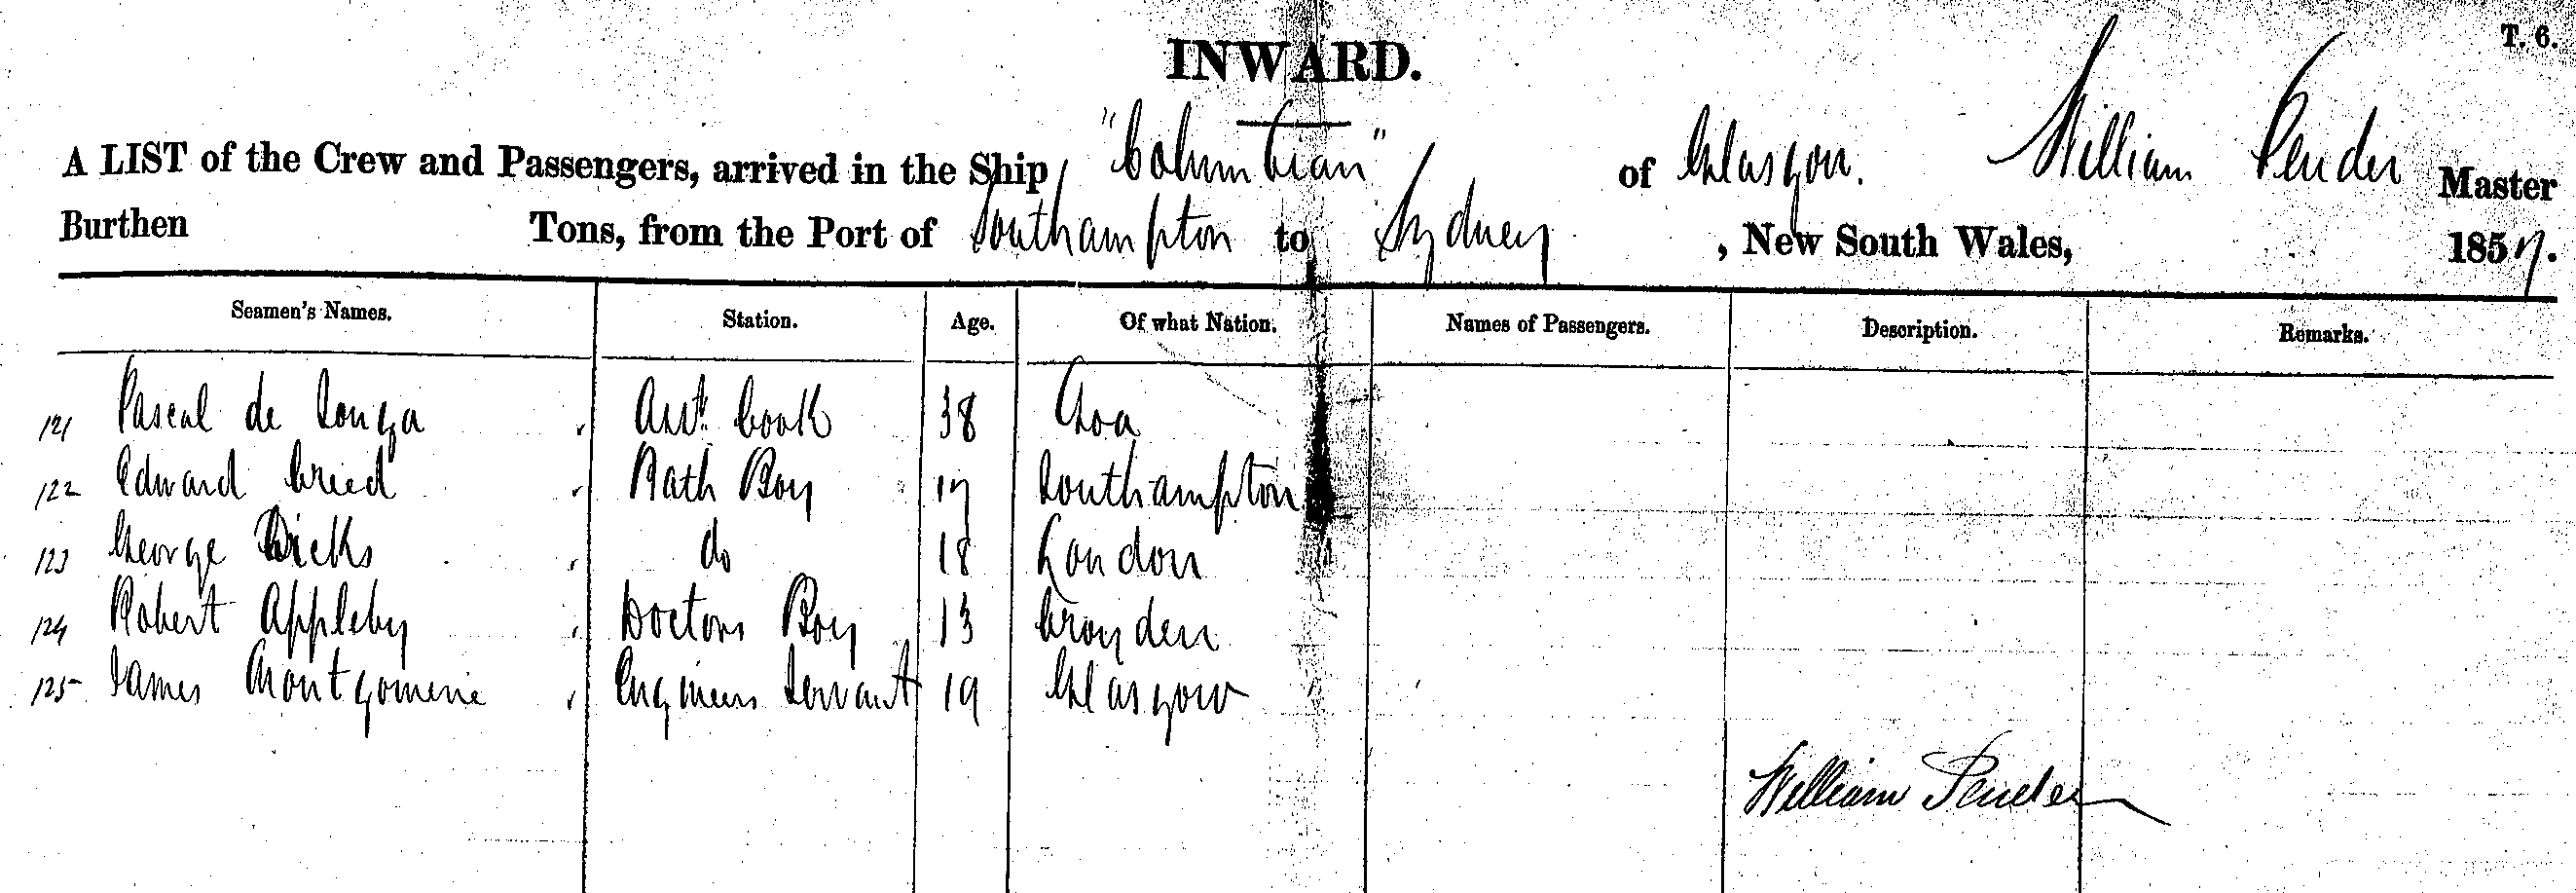 T. 6.
INWARD.
A LIST of the Crew and Passengers, arrived in the Ship "Columbian" of Glasgow. William Pender Master
Burthen Tons, from the Port of Southampton to Sydney , New South Wales, 1857.
Seamen's Names. Station. Age. Of what Nation. Names of Passengers. Description. Remarks.
121 Pascal de Souza Asst. Cook 38 Goa
122 Edward Creed Bath Boy 17 Southampton
123 George Dicks do 18 London
124 Robert Appleby Doctors Boy 13 Croyden
125 James Montgomerie Engineers Servant 19 Glasgow
William Pender